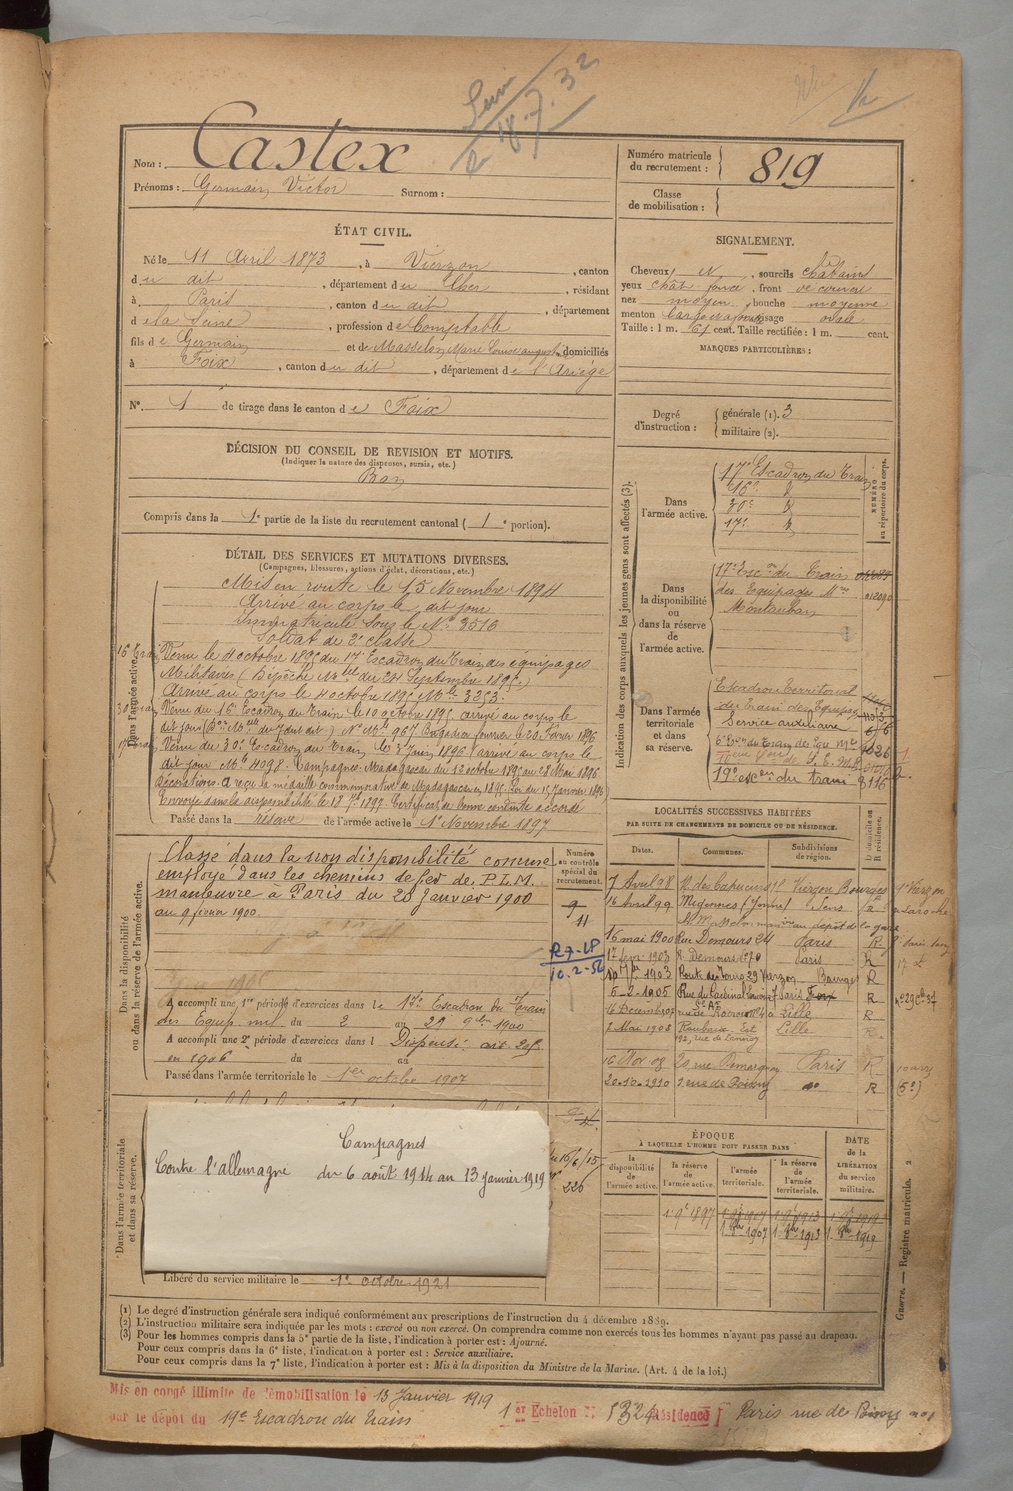 18.7.32
Nom : Castex
Prénoms : Germain Victor Surnom :
Numéro matricule du recrutement : 819
Classe de mobilisation :
ÉTAT CIVIL.
Né le 11 Avril 1873, à Vierzon, canton
du dit, département du Cher, résidant
à Paris, canton du dit, département
de la Seine, profession de Comptable
fils de Germain et de Masselon Marie Louise domiciliés
à Foix, canton du dit, département de l'Ariège
N° 1 de tirage dans le canton de Foix
SIGNALEMENT.
Cheveux N, sourcils châtains
yeux chât foncé, front découvert
nez moyen, bouche moyenne
menton large visage ovale
Taille : 1 m. 61 cent. Taille rectifiée : 1 m. cent.
MARQUES PARTICULIÈRES :
Degré d'instruction : générale (1). 3
militaire (2).
DÉCISION DU CONSEIL DE REVISION ET MOTIFS.
(Indiquer la nature des dispenses, sursis, etc.)
Bon
Compris dans la 1e partie de la liste du recrutement cantonal (1e portion).
DÉTAIL DES SERVICES ET MUTATIONS DIVERSES.
(Campagnes, blessures, actions d'éclat, décorations, etc.)
Dans l'armée active.
Mis en route le 15 Novembre 1894
Arrivé au corps le dit jour
Immatriculé sous le N° 3516
Soldat de 2e classe
16e Train Venu le 4 octobre 1895 du 17e Escadron du Train des équipages
Militaires (Dépêche Mlle du 24 Septembre 1895)
Arrivé au corps le 4 octobre 1895 Mle 3253.
30e Train Venu du 16e Escadron du Train le 10 octobre 1895 arrivé au corps le
dit jour N° Mle 967. Brigadier fourrier le 20 Février 1896
17e Train Venu du 30e Escadron du Train, le 3 Juin 1896 arrivé au corps le
dit jour Mle 4098. Campagnes. Madagascar du 13 octobre 1895 au 28 Mai 1896
Décorations. a reçu la médaille commémorative de Madagascar en 1895. Loi du 15 Janvier 1896
Envoyé dans la disponibilité le 18 7bre 1897. Certificat de bonne conduite accordé
Passé dans la réserve de l'armée active le 1er Novembre 1897
Indication des corps auxquels les jeunes gens sont affectés (3).
NUMÉRO au répertoire du corps.
Dans l'armée active.
17e Escadron du Train
16e d
30e d
17e d
Dans la disponibilité ou dans la réserve de l'armée active.
17e Escon du Train
des Equipages Mres 012090
Montauban
Dans l'armée territoriale et dans sa réserve.
Escadron Territorial
du Train des Equipages
Service auxiliaire
6e Eson du Train des Equ Mres 1026
19e escon du train 8116
Dans la disponibilité ou dans la réserve de l'armée active.
Numéro au contrôle spécial du recrutement.
Classé dans la non disponibilité comme
employé dans les chemins de fer de P.L.M.
manœuvre à Paris du 20 Janvier 1900
au 9 février 1900.
9
11
10.2.52
A accompli une 1re période d'exercices dans le 17e Escadron du Train
des Equip. mil du 2 au 29 9bre 1900
A accompli une 2e période d'exercices dans l Dispensé
en 1906 du au
Passé dans l'armée territoriale le 1er octobre 1907
LOCALITÉS SUCCESSIVES HABITÉES
PAR SUITE DE CHANGEMENTS DE DOMICILE OU DE RÉSIDENCE.
Dates. Communes. Subdivisions de région. Domicile ou Résidence.
7 Avril 98 R. des Capucins 11 Vierzon Bourges
16 Avril 99 Migennes (Yonne) Sens
16 mai 1900 Rue Demours 24 Paris R
17 fév. 1903 R. Demours 70 Paris R
1903 Route de Tours 29 Vierzon Bourges R
5-2-1905 Rue du Cardinal Lemoine 7 Paris R
16 Décembre 07 rue de Rocroi N° 4 à Lille R
2 Mai 1908 Roubaix. Est Lille R
192, rue de Lannoy
16 Nov 08 20, rue Demarquay Paris R
20-10-1910 9 rue de Poissy d° R (5e)
Dans l'armée territoriale et dans sa réserve.
Campagnes
Contre l'allemagne du 6 août 1914 au 13 janvier 1919
16/6/15
220
Libéré du service militaire le 1er octobre 1921
ÉPOQUE
À LAQUELLE L'HOMME DOIT PASSER DANS
la disponibilité de l'armée active. la réserve de l'armée active. l'armée territoriale. la réserve de l'armée territoriale. DATE de la LIBÉRATION du service militaire.
1. 9e 1897 1. 9e 1907 1. 9e 1913 1. 9e 1919
1. 8bre 1907 1. 8bre 1913 1. 8bre 1919
Guerre. — Registre matricule. 2
(1) Le degré d'instruction générale sera indiqué conformément aux prescriptions de l'instruction du 4 décembre 1889.
(2) L'instruction militaire sera indiquée par les mots : exercé ou non exercé. On comprendra comme non exercés tous les hommes n'ayant pas passé au drapeau.
(3) Pour les hommes compris dans la 5e partie de la liste, l'indication à porter est : Ajourné.
Pour ceux compris dans la 6e liste, l'indication à porter est : Service auxiliaire.
Pour ceux compris dans la 7e liste, l'indication à porter est : Mis à la disposition du Ministre de la Marine. (Art. 4 de la loi.)
Mis en congé illimité de démobilisation le 13 Janvier 1919
par le dépôt du 19e Escadron du Train 1er Echelon Résidence Paris rue de Poissy